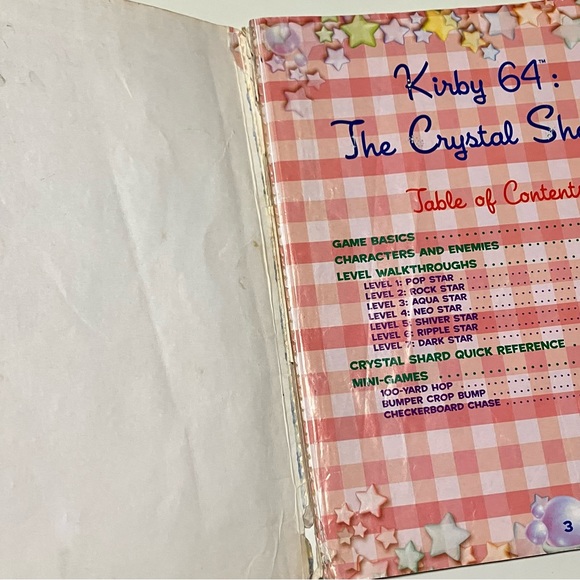 Kirby 64™:
The Crystal She
Table of Content
GAME BASICS
CHARACTERS AND ENEMIES
LEVEL WALKTHROUGHS
LEVEL 1: POP STAR
LEVEL 2: ROCK STAR
LEVEL 3: AQUA STAR
LEVEL 4: NEO STAR
LEVEL 5: SHIVER STAR
LEVEL 6: RIPPLE STAR
LEVEL 7: DARK STAR
CRYSTAL SHARD QUICK REFERENCE
MINI-GAMES
100-YARD HOP
BUMPER CROP BUMP
CHECKERBOARD CHASE
3